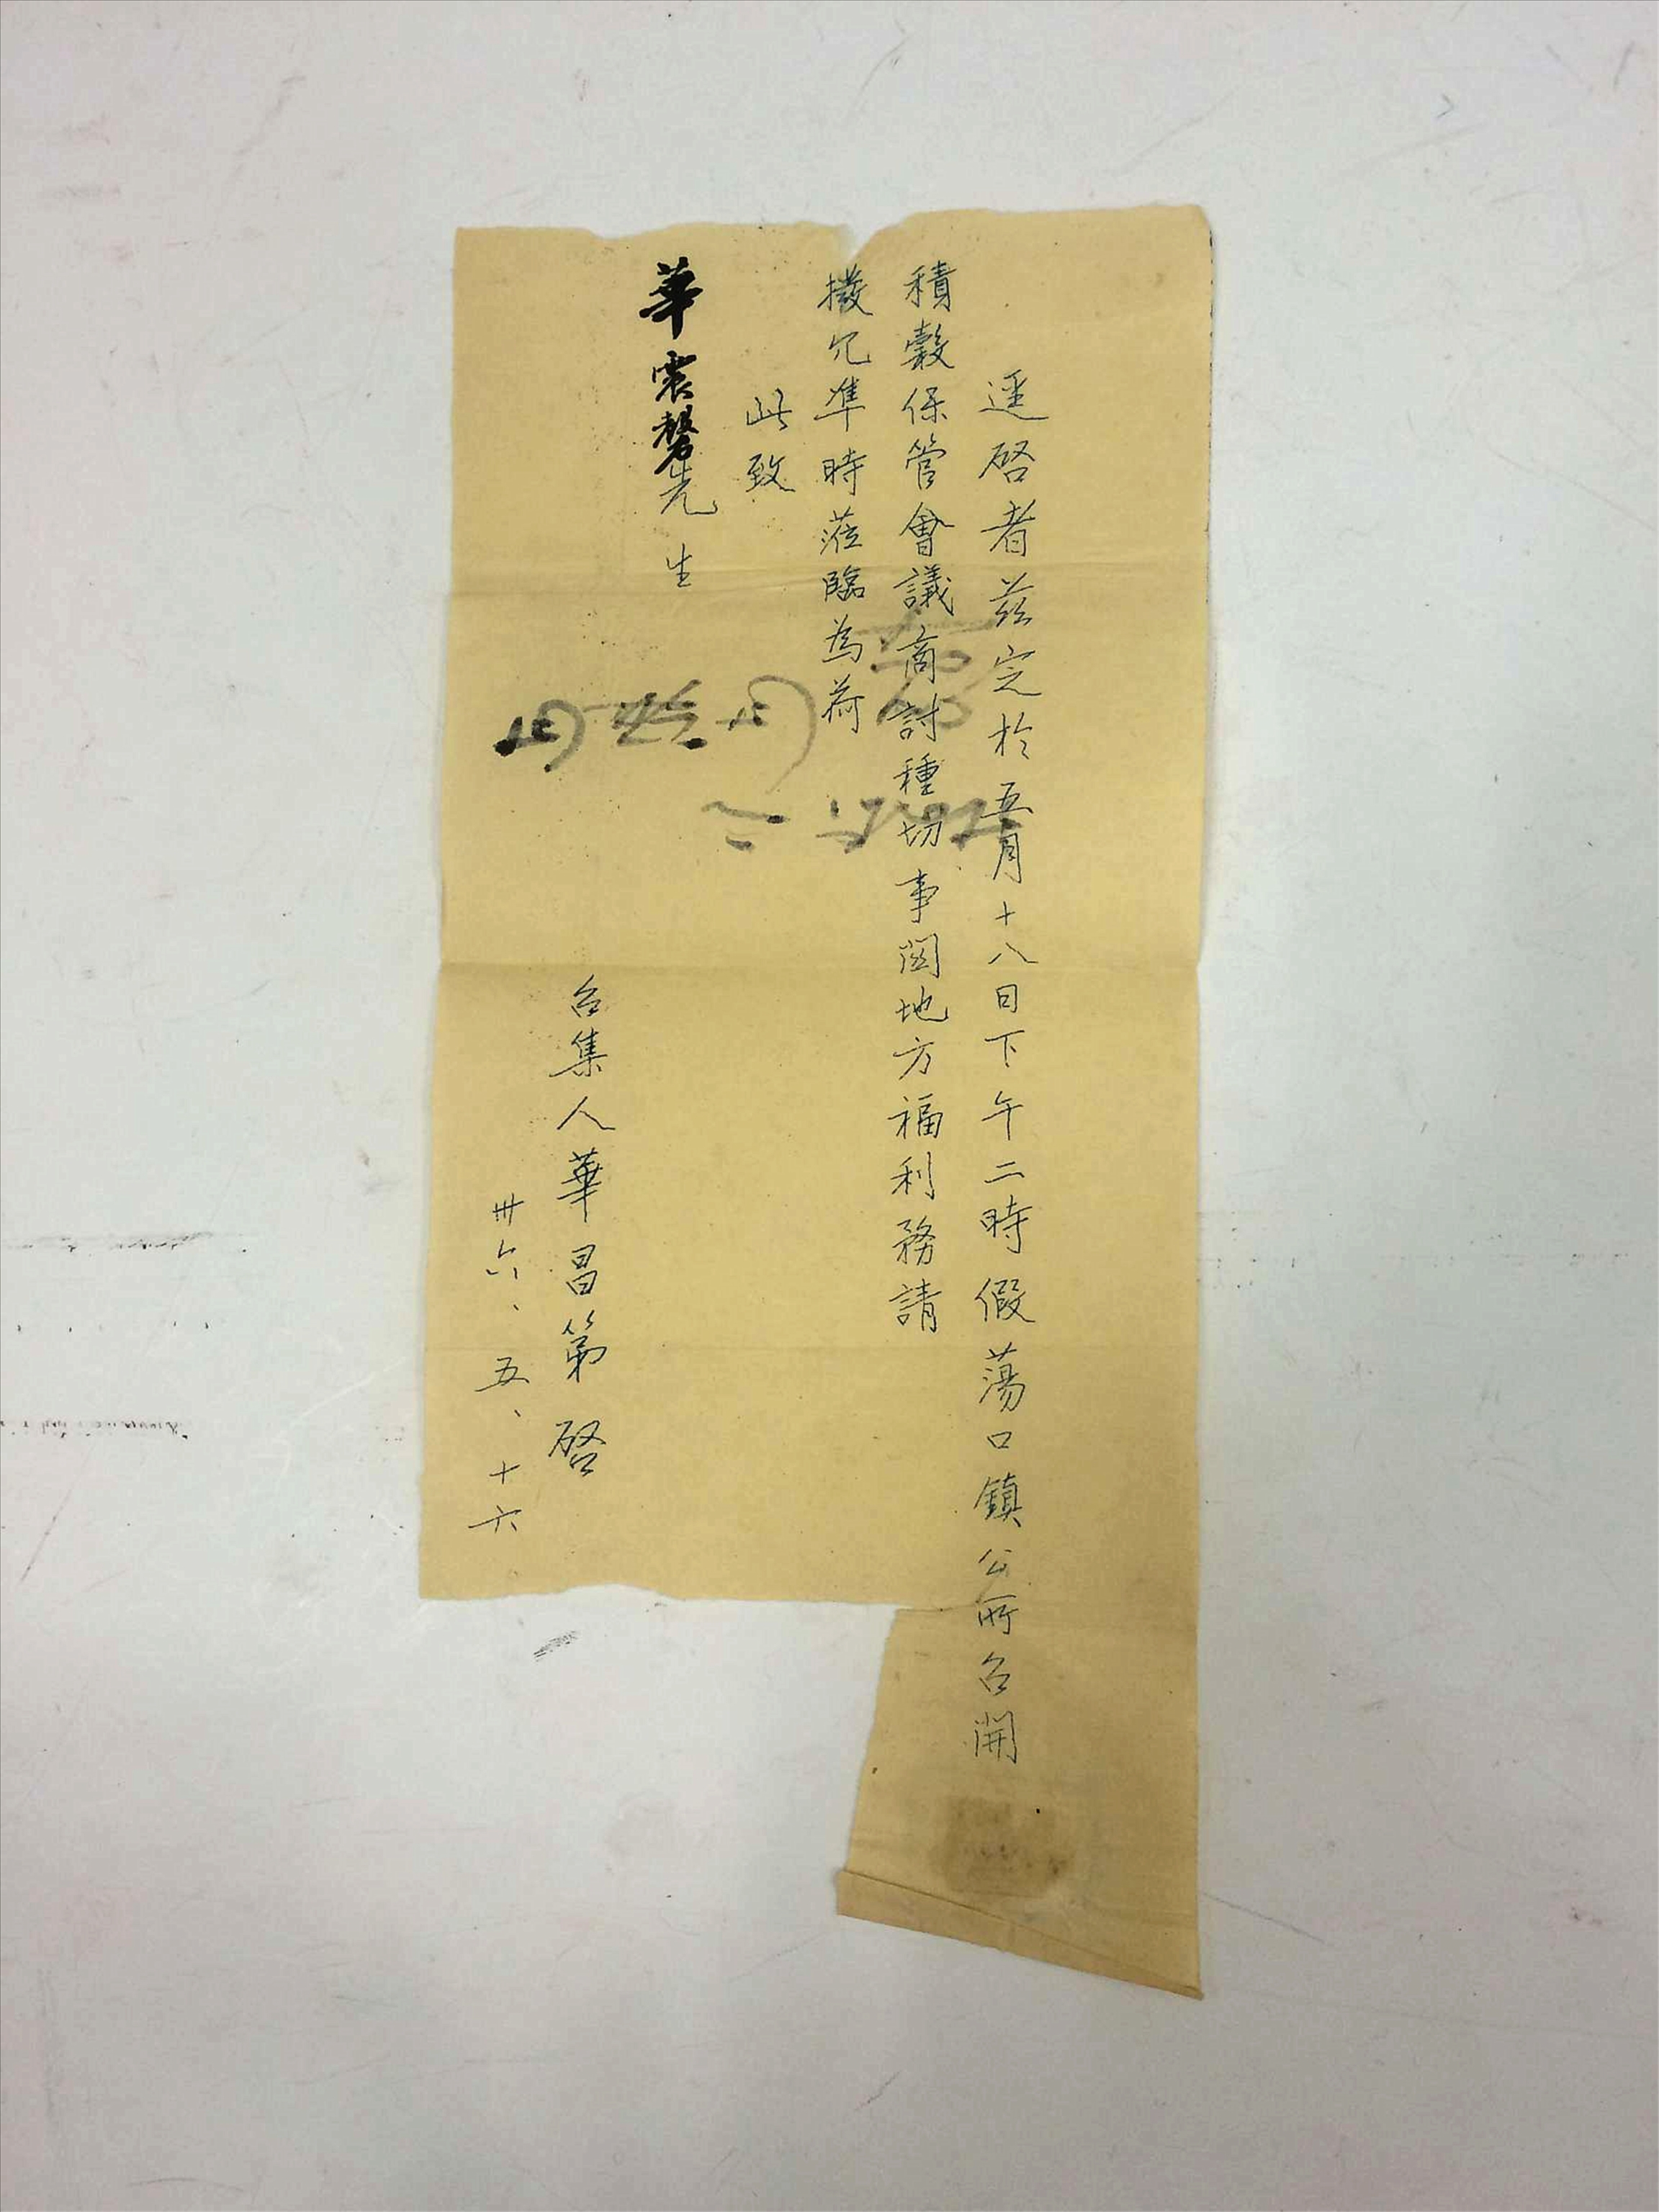 逕啓者茲定於五月十八日下午二時假蕩口鎮公所召開
積穀保管會議商討種切事関地方福利務請
撥冗準時蒞臨為荷
此致
華震磬先生
召集人華昌第啓
卅六、五、十六